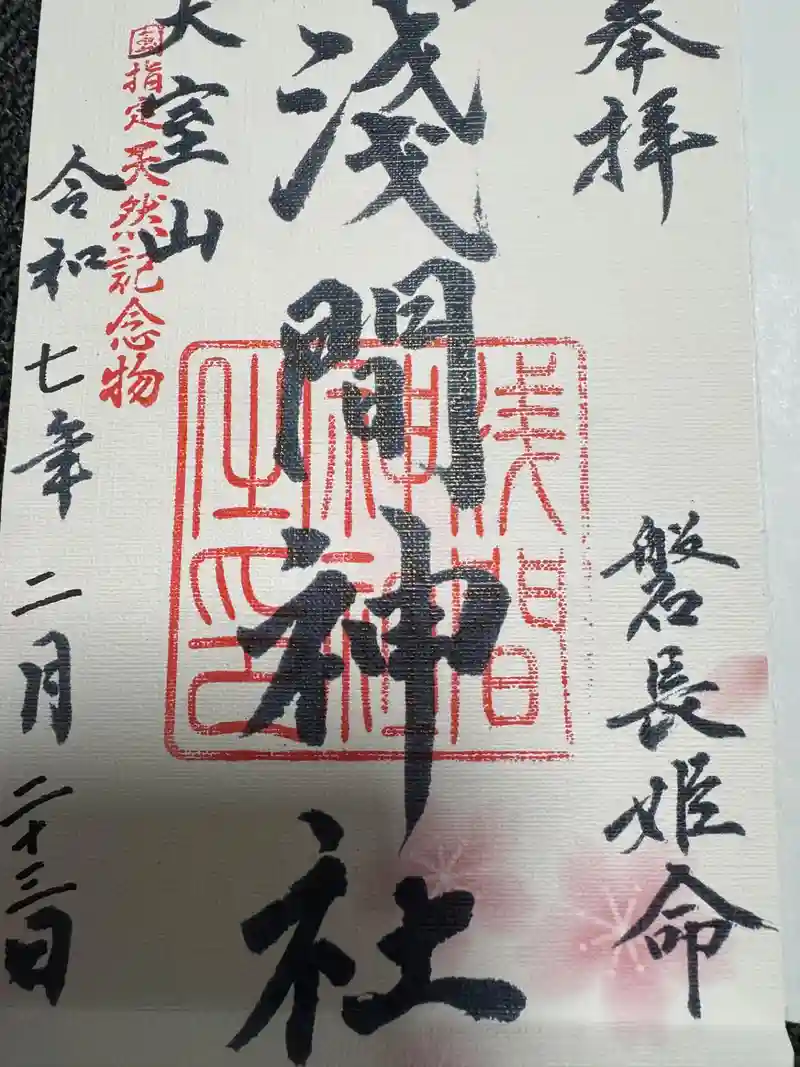 奉拝
磐長姫命
浅間神社
浅間神社之印
大室山
國指定天然記念物
令和七年二月二十三日